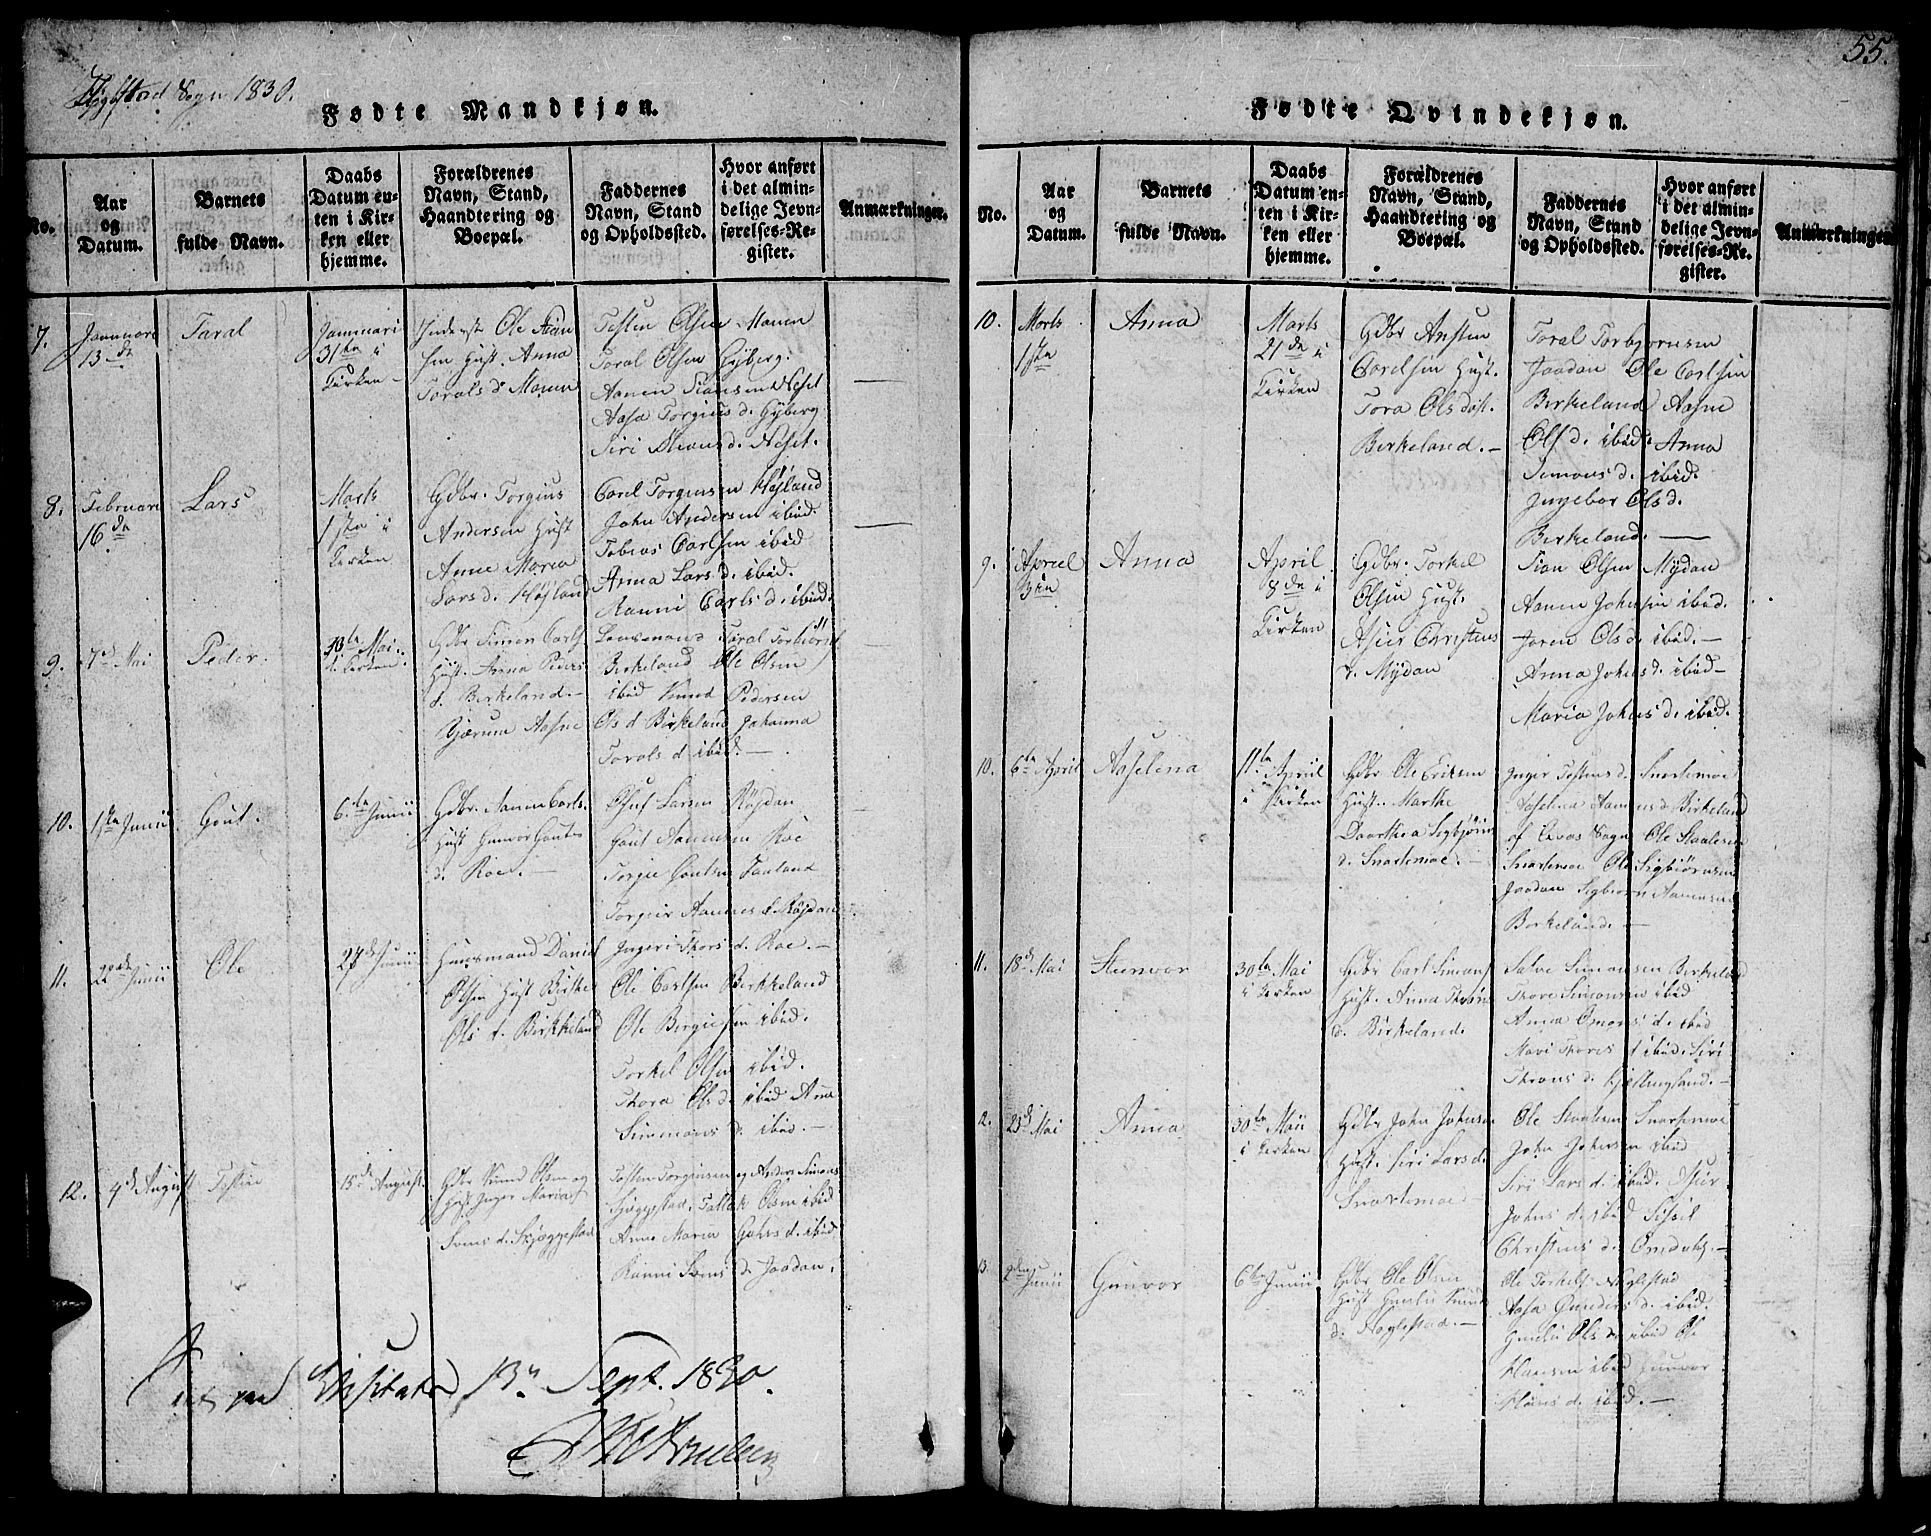 55.
Hægestad Sogn 1830.
Fødte Mandkjøn.
No.
Aar og Datum.
Barnets fulde Navn.
Daabs Datum enten i Kirken eller hjemme.
Forældrenes Navn, Stand, Haandtering og Boepæl.
Faddernes Navn, Stand og Opholdssted.
Hvor anført i det almindelige Jevnførelses-Register.
Anmærkninger.
7.
Januari
13de
Taral
Januari
31te i
Kirken
Inderst Ole Aan
sen Hust. Anna
Tarals d. Monen
Testen Olsen Monen
Taral Olsen Gyberg.
Aanen Tiansen Neset
Aasa Torgius d. Gyberg
Siri Stians d. Neset.
8.
Februari
16de
Lars
Marts
1ste i
Kirken
Gdbr. Torgius
Andersen Hust
Anne Maria
Lars d. Højland
Carel Torgiusen Højland
John Andersen ibid
Tobias Carlsen ibid
Anna Lars d. ibid.
Ranni Carls d. ibid.
9.
7de Mai
Peder.
30te Mai
i Kirken.
Gdbr Simon Carls
Hust. Anna Peders
d. Birkeland.
Lensmand Taral Torbiørns
Birkeland Ole Olsen
ibid Knud Pedersen
Bjærum Aasne Ols d Birkeland Johanna
Tarals d ibid.
10.
1ste Junii
Gout.
6te Junii
Gdbr. Aanen Carls.
Hust Gunvor Gouts
d. Roe.
Oluf Larsen Røjdan
Gout Aanensen Roe
Torgie Goutsen Fauland
Torgier Aanens d. Røjdan
11.
22de Junii
Ole
27de Junii
Huusmand Daniel
Olsen Hust Birthe
Ols d. Birkkeland
Ingeri Thors d. Roe.
Ole Carlsen Birkkeland
Ole Birgiesen ibid.
Torkel Olsen ibid.
Thora Ols d. ibid Anna
Simmons d. ibid.
12.
4de August
15de August.
Gdbr Knud Olsen og
Hust Inger Maria
Svens d. Skjæggestad
Tosten Torgiusen og Anders Simons
Skjæggestad. Tallak Olsen ibid
Anne Maria Gahrs d. ibid
Ranni Svens d. Jaadan.
Visitats 13n Sept. 1830.
Fødte Qvindekjøn.
No.
Aar og Datum.
Barnets fulde Navn.
Daabs Datum enten i Kirken eller hjemme.
Forældrenes Navn, Stand, Haandtering og Boepæl.
Faddernes Navn, Stand og Opholdssted.
Hvor anført i det almindelige Jevnførelses-Register.
Anmærkninger
10.
Marts
1ste
Anna
Marts
21de i
Kirken
Gdbr Ansten
Carelsen Hust.
Tora Ols dat.
Birkeland.
Taral Torbjørnsen
Jaadan Ole Carlsen
Birkeland Aasne
Ols d. ibid. Anna
Simons d. ibid.
Ingebor Ols d.
Birkeland.
9.
Apriel
3die
Anna
April
8de i
Kirken
Gdbr. Torkel
Olsen Hust.
Asier Christens
d. Mydan
Tian Olsen Mydan
Aanen Johnsen ibid.
Joren Ols d. ibid.
Anna Johns d. ibid
Maria Johns d. ibid.
10.
6te April
Aaselena
11te April
i Kirken
Gdbr Ole Eriksen
Hust. Marthe
Doorthea Sigbjørns
d. Snartemoe.
Inger Testens d. Snartemoe
Aaselina Aanens d Birkeland
af Qvas Sogn Ole Staalesen
Snartemoe Ole Sigbiørnsen
Jaadan Sigbiørn Aanensen
Birkeland.
11.
18de Mai
Steenvor
30te Mai
i Kirken
Gdbr Carl Simons
Hust. Anna Thrøns
d. Birkeland.
Salve Simonsen Birkeland
Thore Simonsen ibid
Anna Omons d. ibid
Mari Thores d ibid. Siri
Throns d. Kjellingland.
12.
23de Mai
Anna
30te Mai
i Kirken
Gdbr John Johnsen
Hust. Siri Lars d.
Snartemoe.
Ole Staalesen Snartemoe
John Johnsen ibid
Siri Lars d. ibid. Asier
Johns d. ibid Sissel
Christens d. Omdahl.
13.
2den Junii
Gunvor
6te Junii
Gdbr Ole Olsen
Hust Gunild Knuds
d. Noglestad.
Ole Torkels. Noglestad
Aasa Gunders d. ibid.
Gunild Ols d. ibid Ole
Hansen ibid Gunvor
Hans d. ibid.